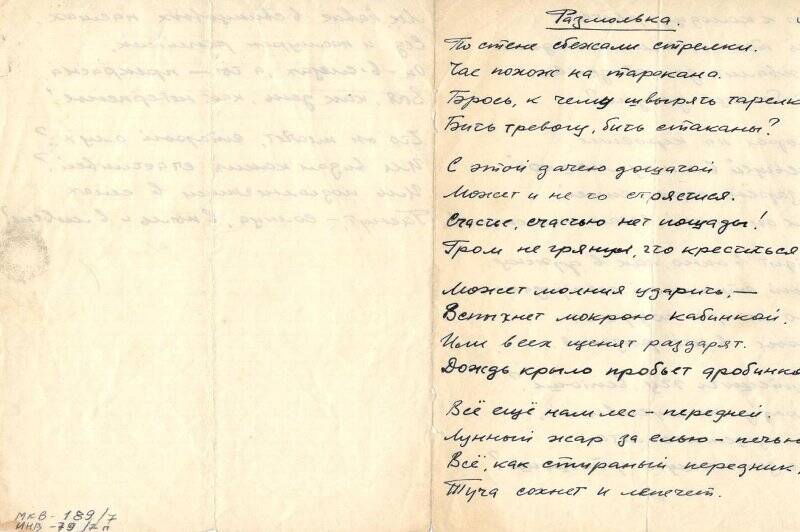 Размолвка.
По стене сбежали стрелки.
Час похож на таракана.
Брось, к чему швырять тарелк
Бить тревогу, бить стаканы?
С этой дачею дощатой
Может и не то стрястися.
Счастье, счастью нет пощады!
Гром не грянул, что креститься
Может молния ударить, —
Вспыхнет мокрою кабинкой.
Или всех щенят раздарят.
Дождь крыло пробьет дробинко
Всё ещё нам лес – передней.
Лунный жар за елью – печью
Всё, как стираный передник,
Туча сохнет и лепечет.
МКВ - 189/7
ИНВ - 79/7 п